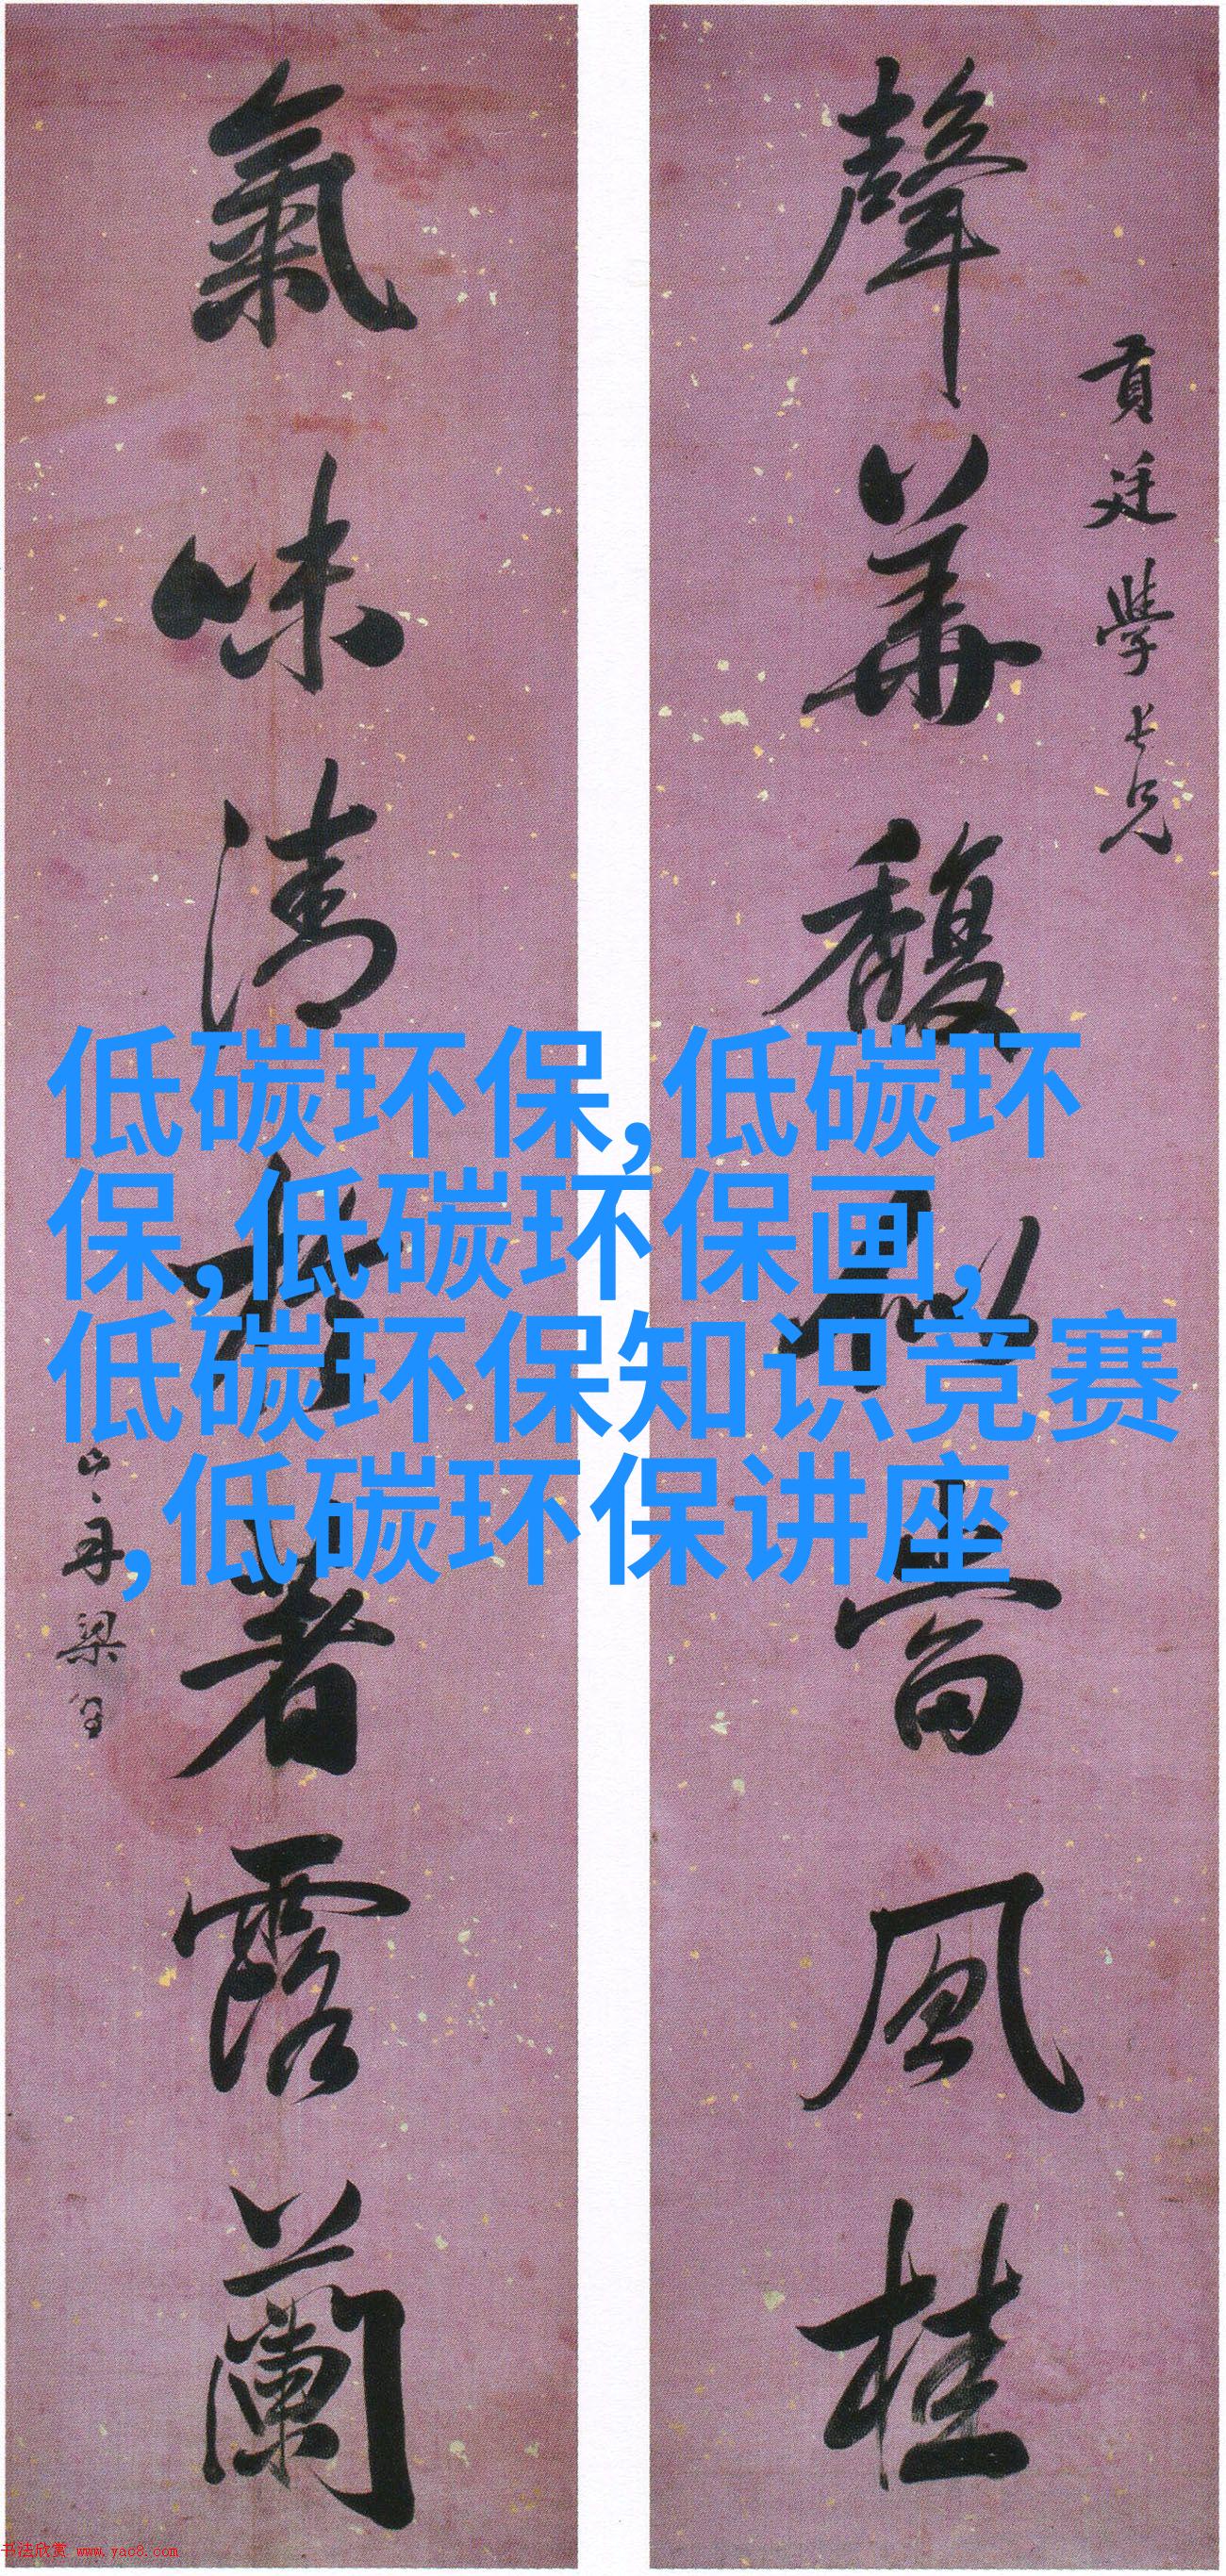 貢廷學長兄
聲華馥似當風桂
氣味清著露蘭
山舟梁
低碳环保,低碳环
保,低碳环保画,
低碳环保知识竞赛
,低碳环保讲座
书法欣赏 www.yac8.com